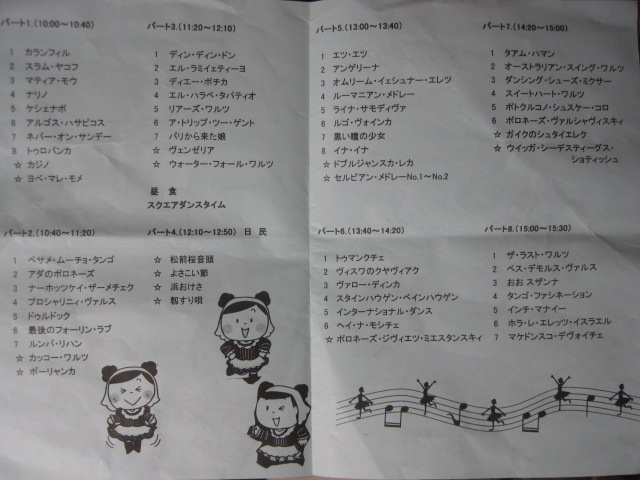 パート1.(10:00~10:40)
1 カランフィル
2 スラム・ヤコフ
3 マティア・モウ
4 ナリノ
5 ケシェナボ
6 アルゴス・ハサピコス
7 ネバー・オン・サンデー
8 トゥロパンカ
☆ カジノ
☆ ヨベ・マレ・モメ
パート2.(10:40~11:20)
1 ベサメ・ムーチョ・タンゴ
2 アダのポロネーズ
3 ナーホッツケイ・ザーメチェク
4 プロシャリニィ・ヴァルス
5 ドゥルドック
6 最後のフォーリン・ラブ
7 ルンバ・リハン
☆ カッコー・ワルツ
☆ ポーリャンカ
パート3.(11:20~12:10)
1 ディン・ディン・ドン
2 エル・ラミィエティーヨ
3 ディエー・ポチカ
4 エル・ハラベ・タパティオ
5 リアーズ・ワルツ
6 ア・トリップ・ツー・ゲント
7 パリから来た娘
☆ ヴェンゼリア
☆ ウォーター・フォール・ワルツ
昼 食
スクエアダンスタイム
パート4.(12:10~12:50) 日 民
☆ 松前桜音頭
☆ よさこい節
☆ 浜おけさ
☆ 籾すり唄
パート5.(13:00~13:40)
1 エツ・エツ
2 アンゲリーナ
3 オムリーム・イェシュナー・エレツ
4 ルーマニアン・メドレー
5 ライナ・サモディヴァ
6 ルゴ・ヴォインカ
7 黒い瞳の少女
8 イナ・イナ
☆ ドブルジャンスカ・レカ
☆ セルビアン・メドレーNo.1~No.2
パート6.(13:40~14:20)
1 トゥマンクチェ
2 ヴィスワのクヤヴィアク
3 ヴァロー・ディンカ
4 スタインハウゲン・ペインハウゲン
5 インターナショナル・ダンス
6 ヘイ・ナ・モシチェ
☆ ポロネーズ・ジヴィエツ・ミエスタンスキィ
パート7.(14:20~15:00)
1 タアム・ハマン
2 オーストラリアン・スイング・ワルツ
3 ダンシング・シューズ・ミクサー
4 スイートハート・ワルツ
5 ポトクルコノ・シュスケー・コロ
6 ポロネーズ・ヴァルシャヴィスキィ
☆ ガイクのシュタイエレク
☆ ウイッガ・シーデスティーグス・
ショティッシュ
パート8.(15:00~15:30)
1 ザ・ラスト・ワルツ
2 ベス・デモルス・ヴァルス
3 おお スザンナ
4 タンゴ・ファシネーション
5 インチ・マナイー
6 ホラ・レ・エレッツ・イスラエル
7 マケドンスコ・デヴォイチェ